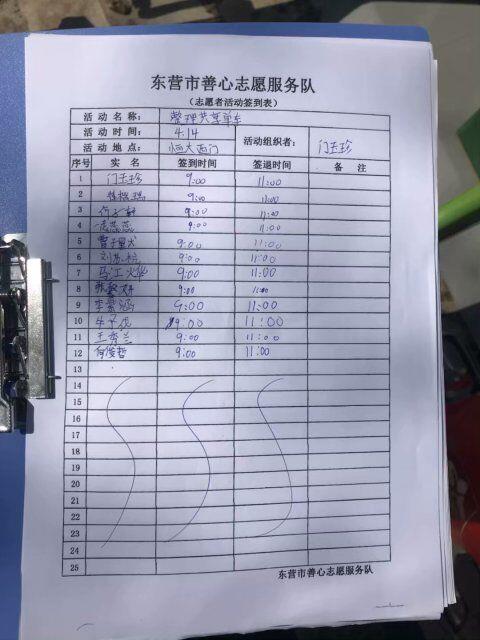 东营市善心志愿服务队
（志愿者活动签到表）
活动名称： 整理共享单车
活动时间： 4.14 活动组织者： 门玉珍
活动地点： 恒大西门
序号 实名 签到时间 签退时间 备注
1 门玉珍 9:00 11:00
2 9:00 11:00
3 9:00 11:00
4 9:00 11:00
5 9:00 11:00
6 9:00 11:00
7 9:00 11:00
8 9:00 11:00
9 9:00 11:00
10 9:00 11:00
11 王秀兰 9:00 11:00
12 何俊哲 9:00 11:00
13
14
15
16
17
18
19
20
21
22
23
24
25
东营市善心志愿服务队